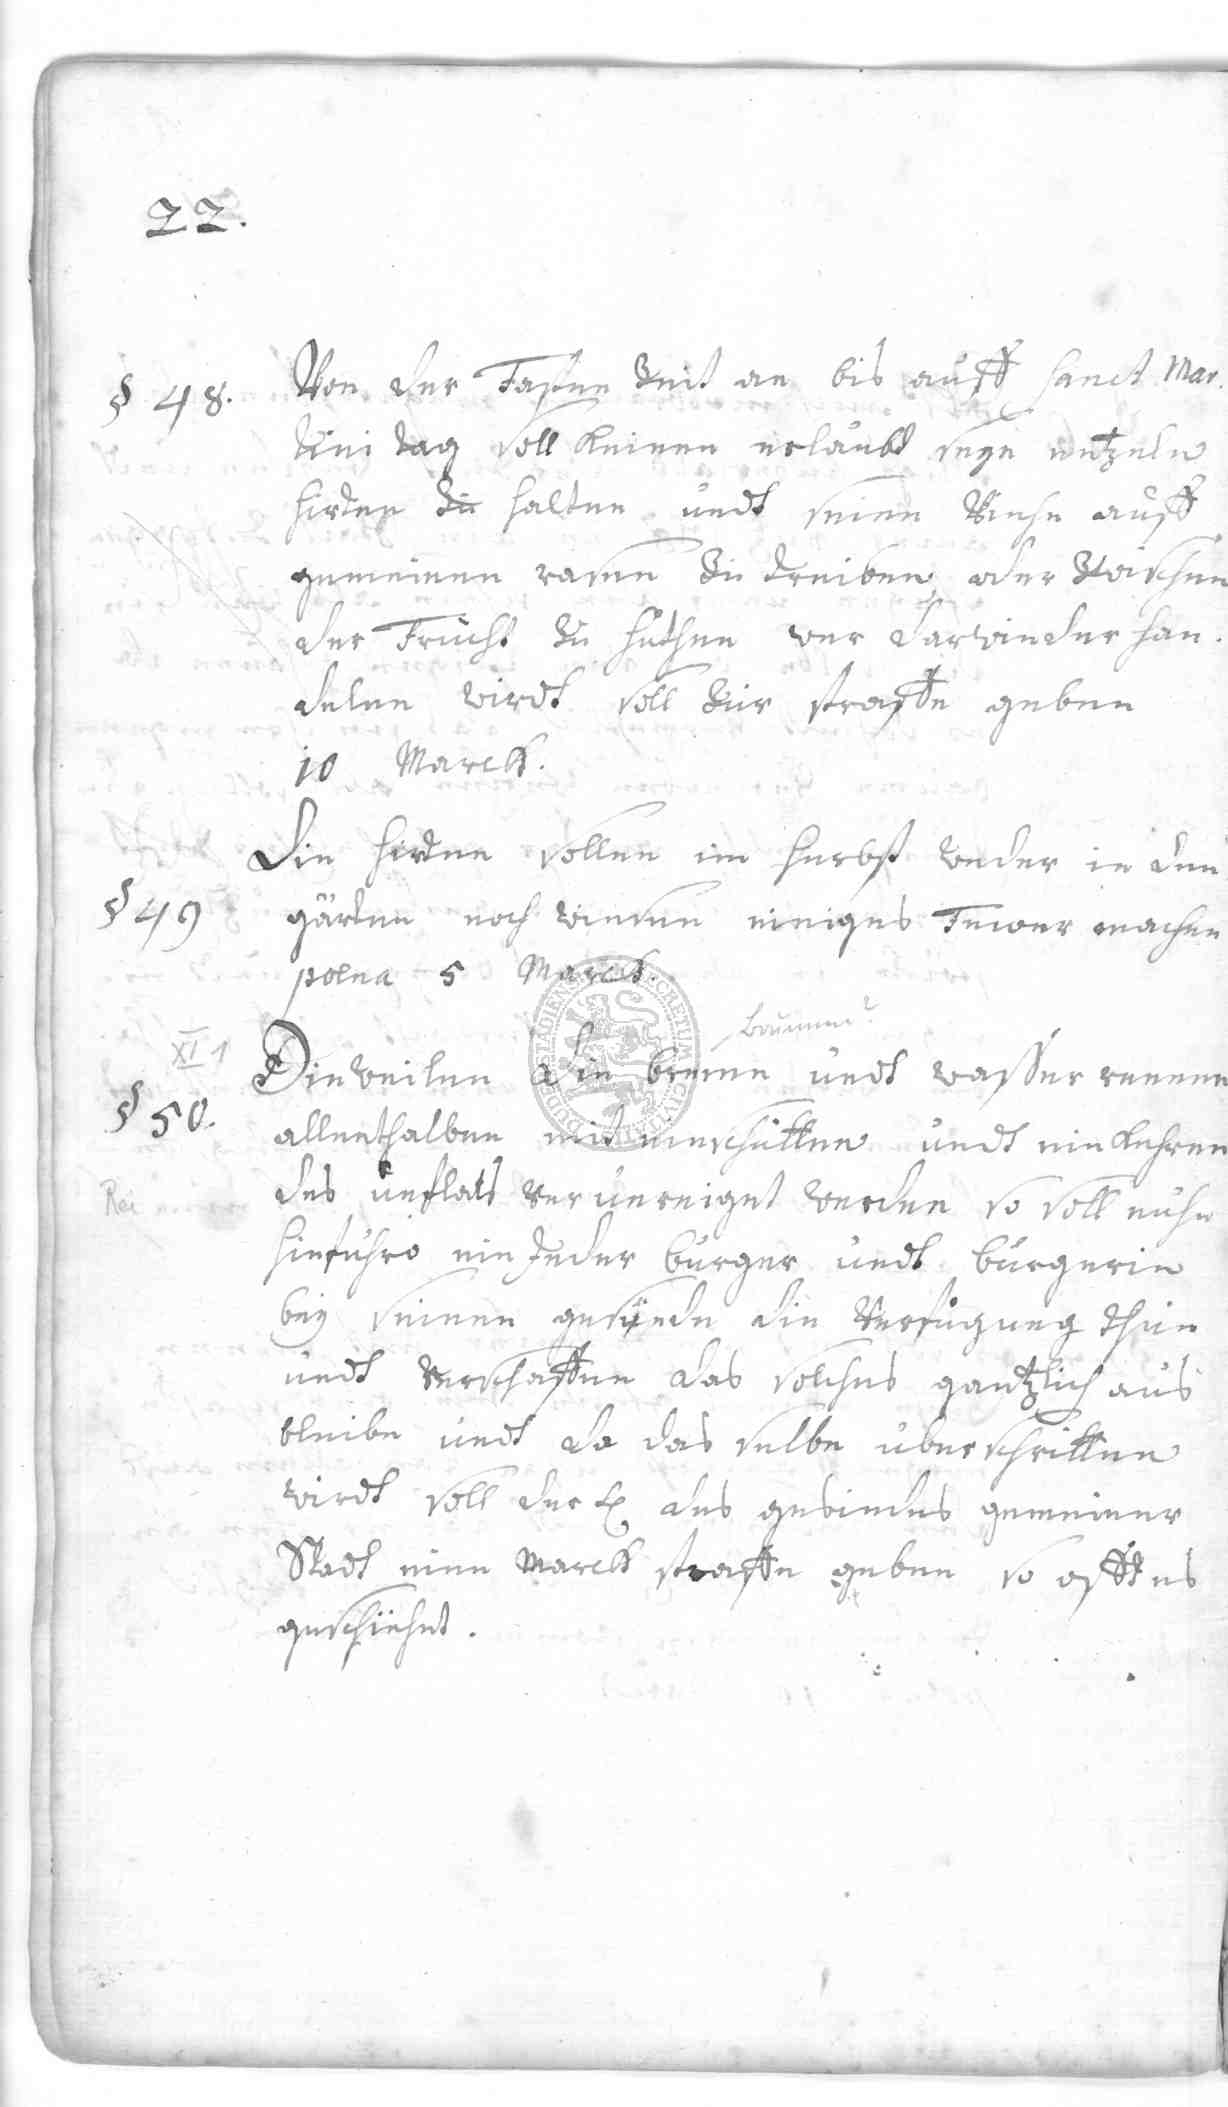 22.
§ 48. Von der Fasten Zeit an bis auff Sanct Mar.
tini tag soll keinen erlaubt seyn eintzeln
hirten zu halten undt seine Viehe auff
gemeinen rasen zu treiben oder zwischen
der Frucht zu hüthen wer darwieder han.
delen wirdt soll zur straffe geben
10 Marck.
Die hirten sollen im herbst weder in den
§ 49 gärten noch wiesen einiges Feuer machen
poena 5 Marck.
baumend?
XI 1 Dieweilen die brenne undt wasser rennen
§ 50. allenthalben mit einschütten undt einkehren
Rei des unflats verunreigent werden so soll nuhn
hinfuhro ein Jeder burger undt burgerin
bey seinen gesinde die Verfügung thun
undt verschaffen das solches gantzlich aus
bleibe undt da das selbe überschritten
wirdt soll der H. des gesindes gemeiner
Stadt eine Marck straffe geben so offt es
geschiehet.